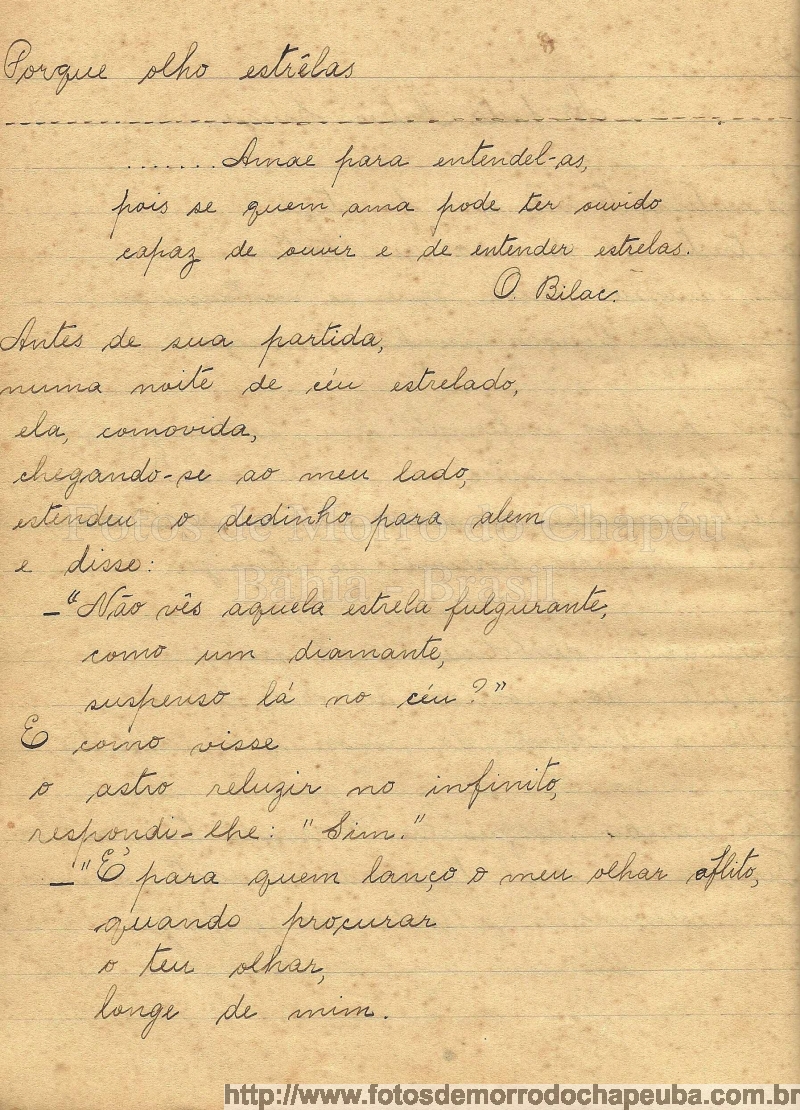 Porque olho estrêlas
.......Amae para entendel-as,
pois se quem ama pode ter ouvido
capaz de ouvir e de entender estrelas.
O. Bilac.
Antes de sua partida,
numa noite de céu estrelado,
ela, comovida,
chegando-se ao meu lado,
estendeu o dedinho para alem
Fotos de Morro do Chapeu
e disse:
Bahia - Brasil
—"Não vês aquela estrela fulgurante,
como um diamante,
suspenso lá no céu?"
E como visse
o astro reluzir no infinito,
respondi-lhe: "Sim."
—"É para quem lanço o meu olhar aflito,
quando procurar
o teu olhar,
longe de mim.
http://www.fotosdemorrodochapeuba.com.br